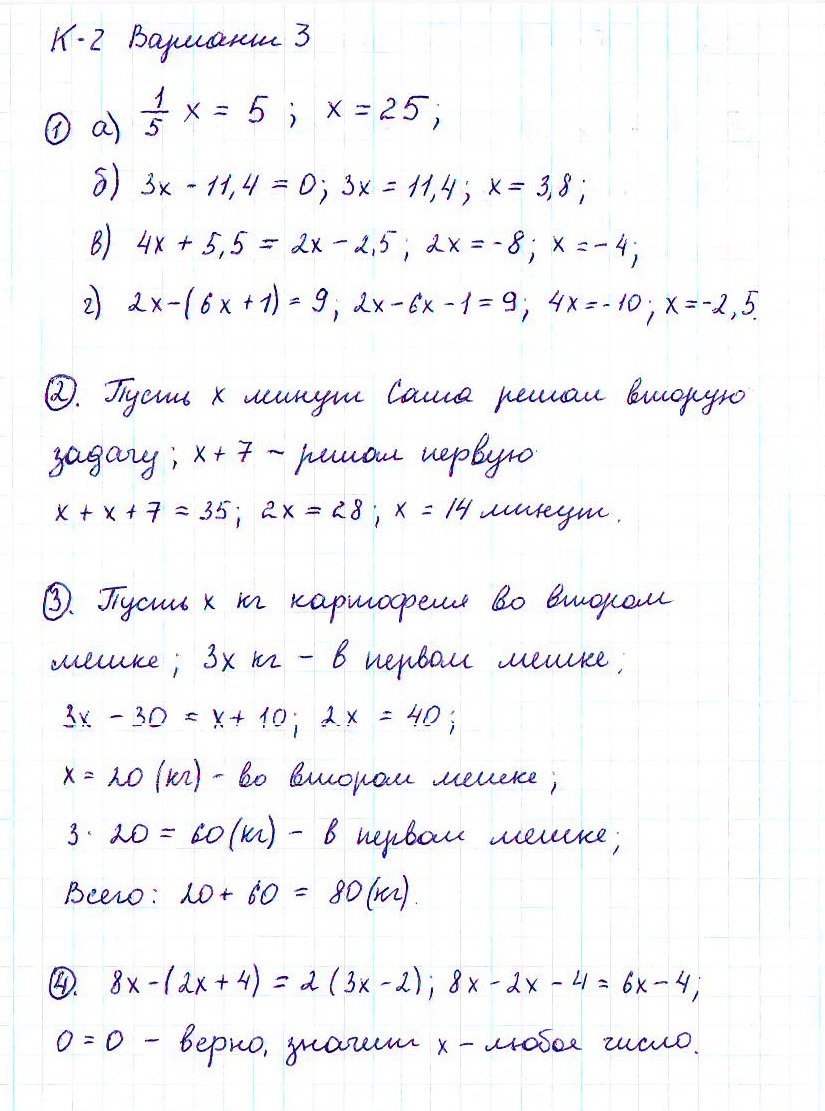 К-2 Вариант 3
① а) 1/5 x = 5 ; x = 25;
б) 3x - 11,4 = 0; 3x = 11,4; x = 3,8;
в) 4x + 5,5 = 2x - 2,5; 2x = -8; x = -4;
г) 2x-(6x+1) = 9; 2x-6x-1=9; 4x=-10; x=-2,5.
②. Пусть x минут Саша решал вторую
задачу; x+7 - решал первую
x + x + 7 = 35; 2x = 28; x = 14 минут.
③. Пусть x кг картофеля во втором
мешке; 3x кг - в первом мешке;
3x - 30 = x + 10; 2x = 40;
x = 20 (кг) - во втором мешке;
3· 20 = 60 (кг) - в первом мешке;
Всего: 20 + 60 = 80 (кг).
④. 8x-(2x+4) = 2(3x-2); 8x-2x-4=6x-4;
0=0 - верно, значит x - любое число.